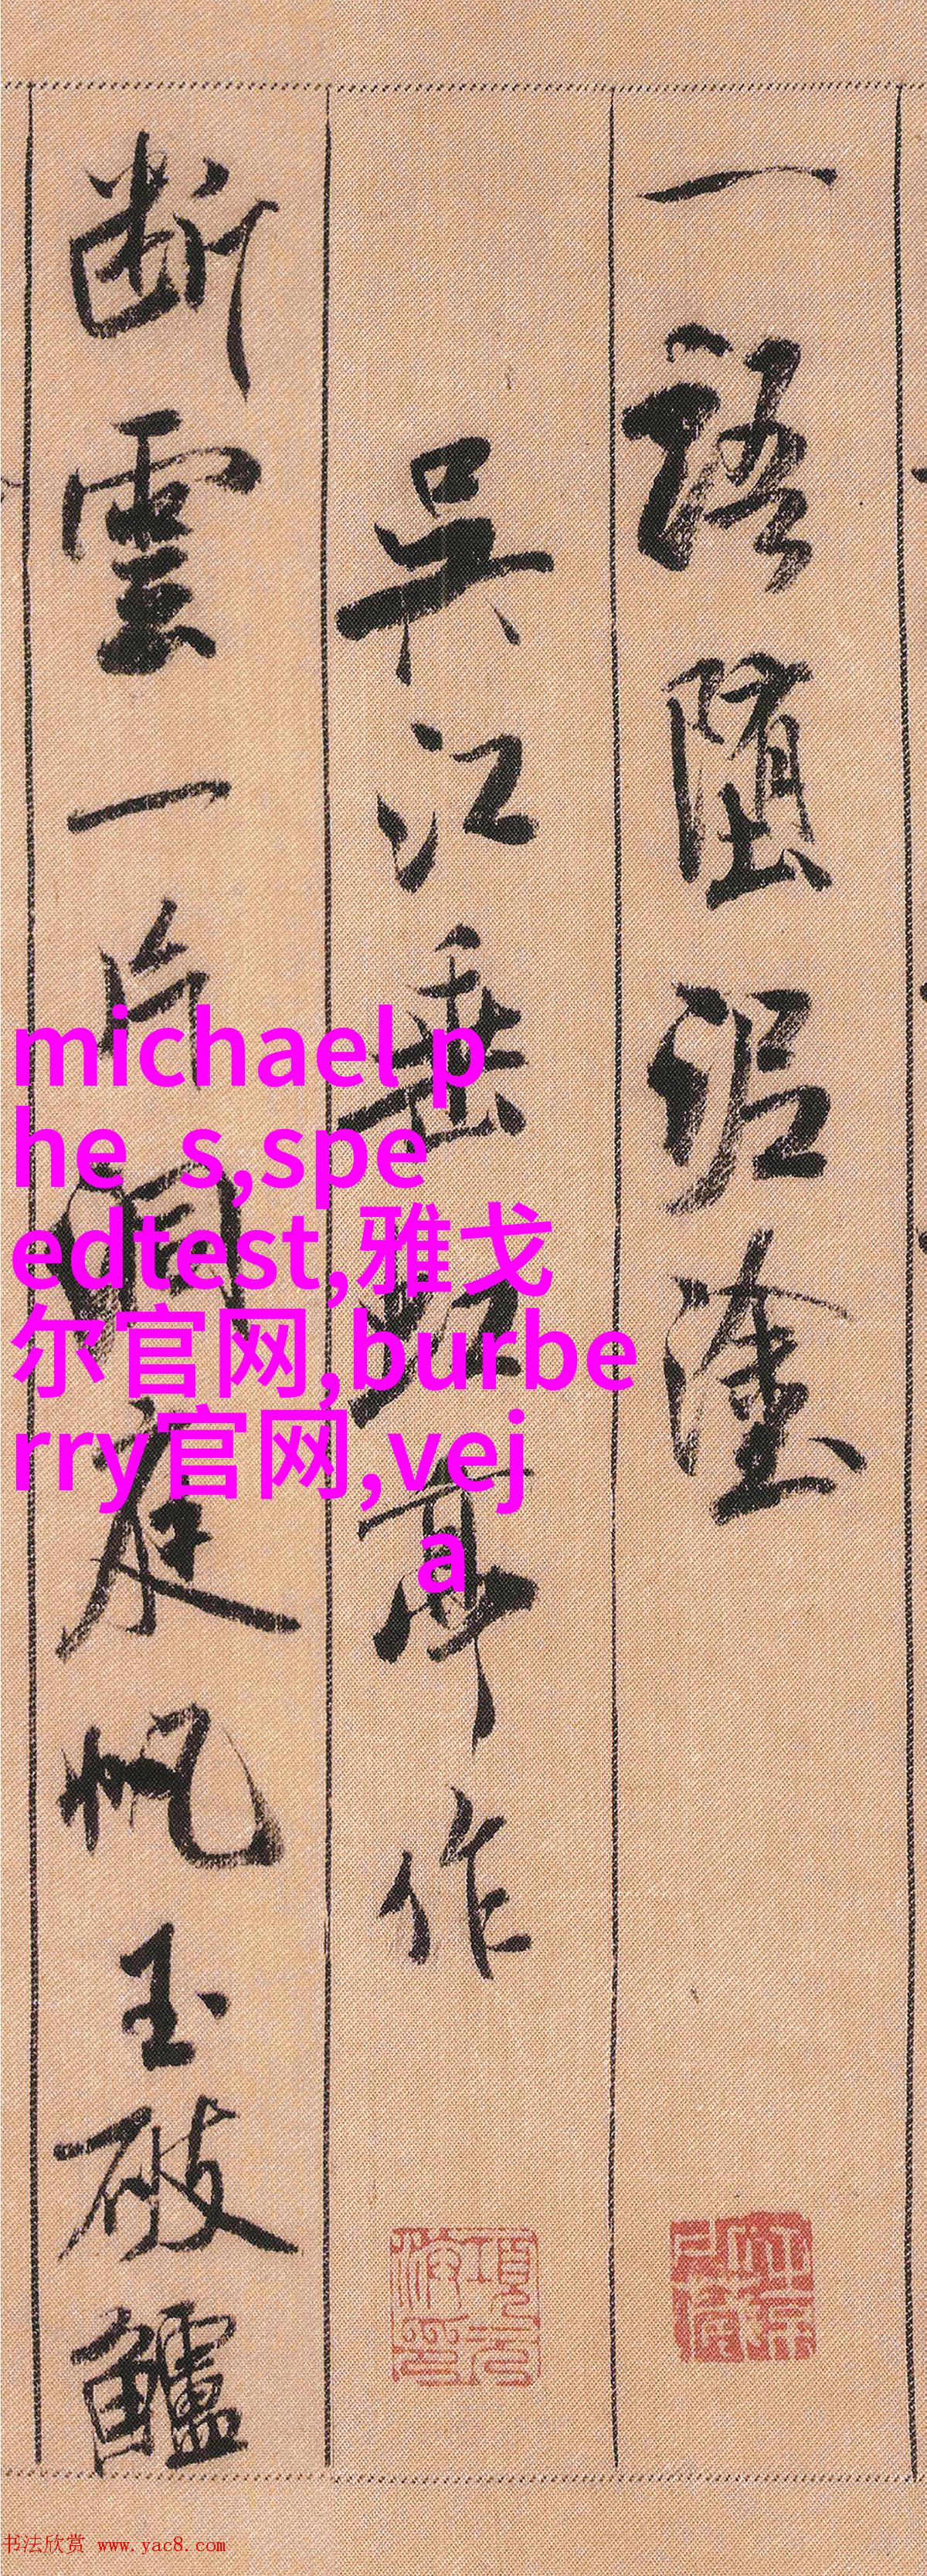 一語墮泥塗
吳江垂虹亭作
断雲一片洞庭帆玉破鱸
michael p
he s,spe
edtest,雅戈
尔官网,burbe
rry官网,vej
a
书法欣赏 www.yac8.com